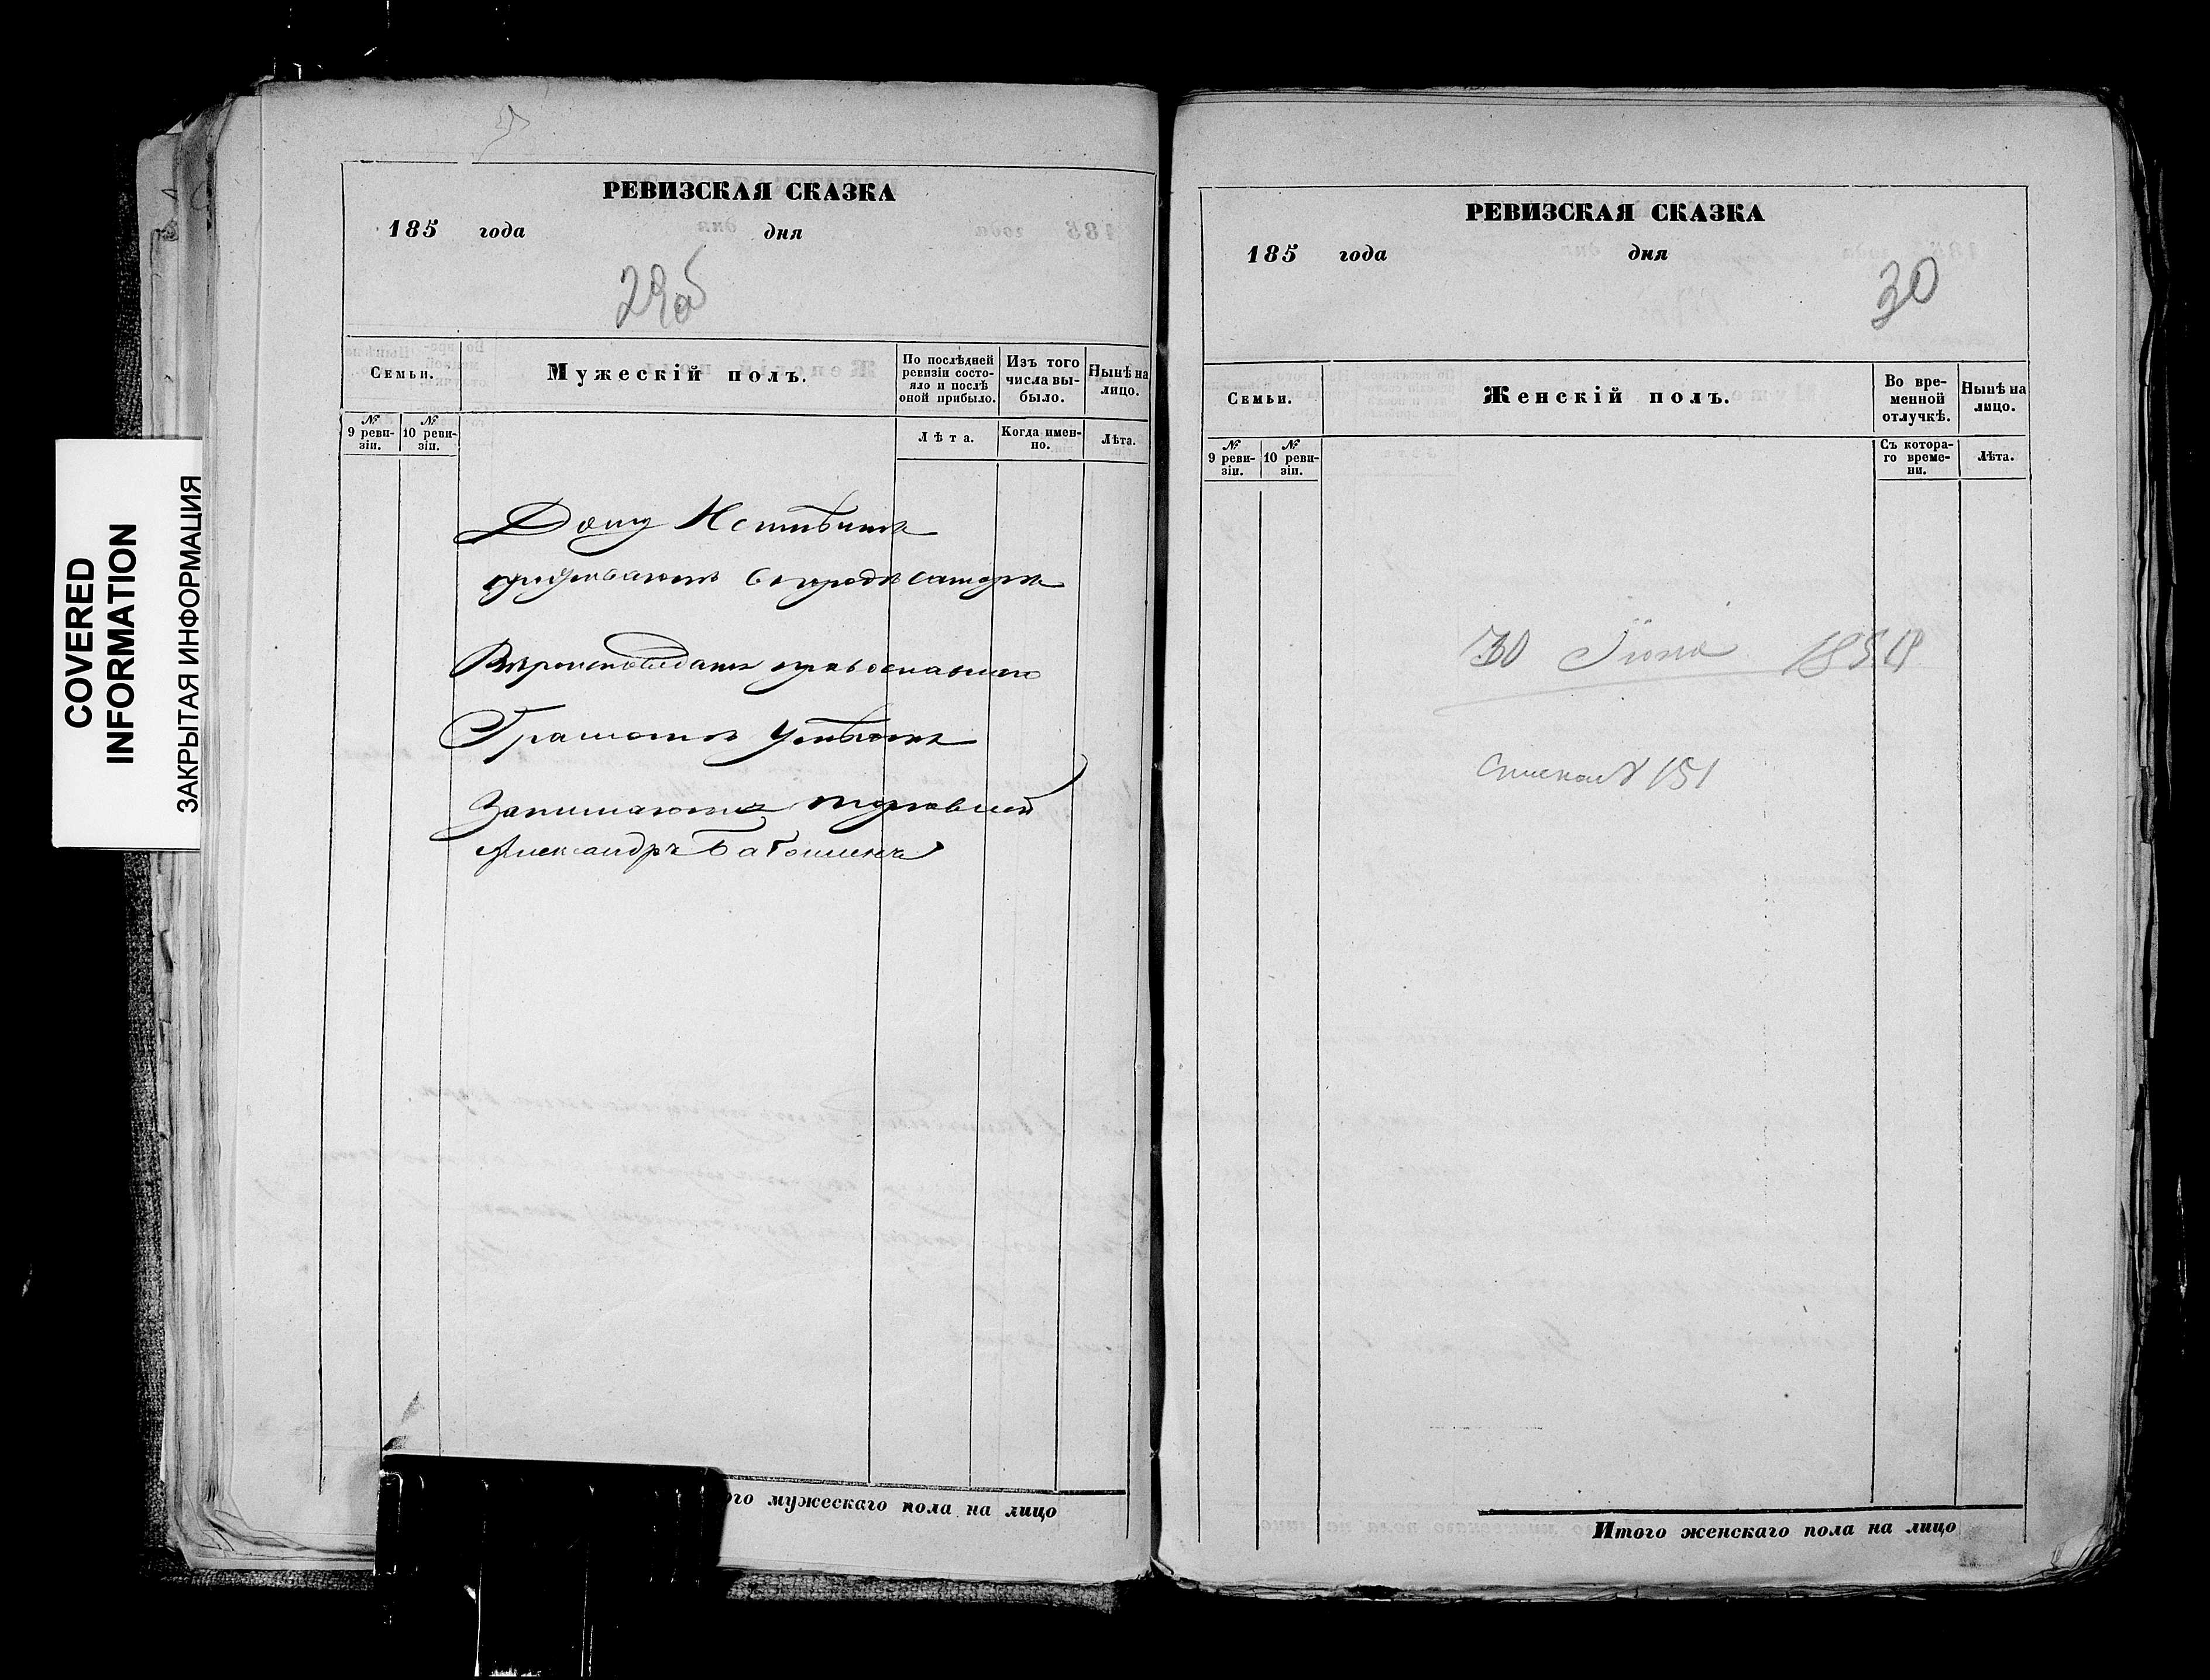 COVERED
INFORMATION
ЗАКРЫТАЯ ИНФОРМАЦИЯ
РЕВИЗСКАЯ СКАЗКА
185 года дня
29об
Семьи.
Мужескій полъ.
По послѣдней ревизіи состояло и послѣ оной прибыло.
Изъ того числа выбыло.
Нынѣ на лицо.
№ 9 ревизіи.
№ 10 ревизіи.
Лѣта.
Когда именно.
Лѣта.
Дому
проживаютъ в городѣ самарѣ
Вѣроисповѣданія православнаго
Грамотѣ
Занимаются торговлей
Александръ
ого мужескаго пола на лицо
РЕВИЗСКАЯ СКАЗКА
185 года дня
30
Семьи.
Женскій полъ.
Во временной отлучкѣ.
Нынѣ на лицо.
№ 9 ревизіи.
№ 10 ревизіи.
Съ котораго времени.
Лѣта.
30 Іюня 1858
151
Итого женскаго пола на лицо